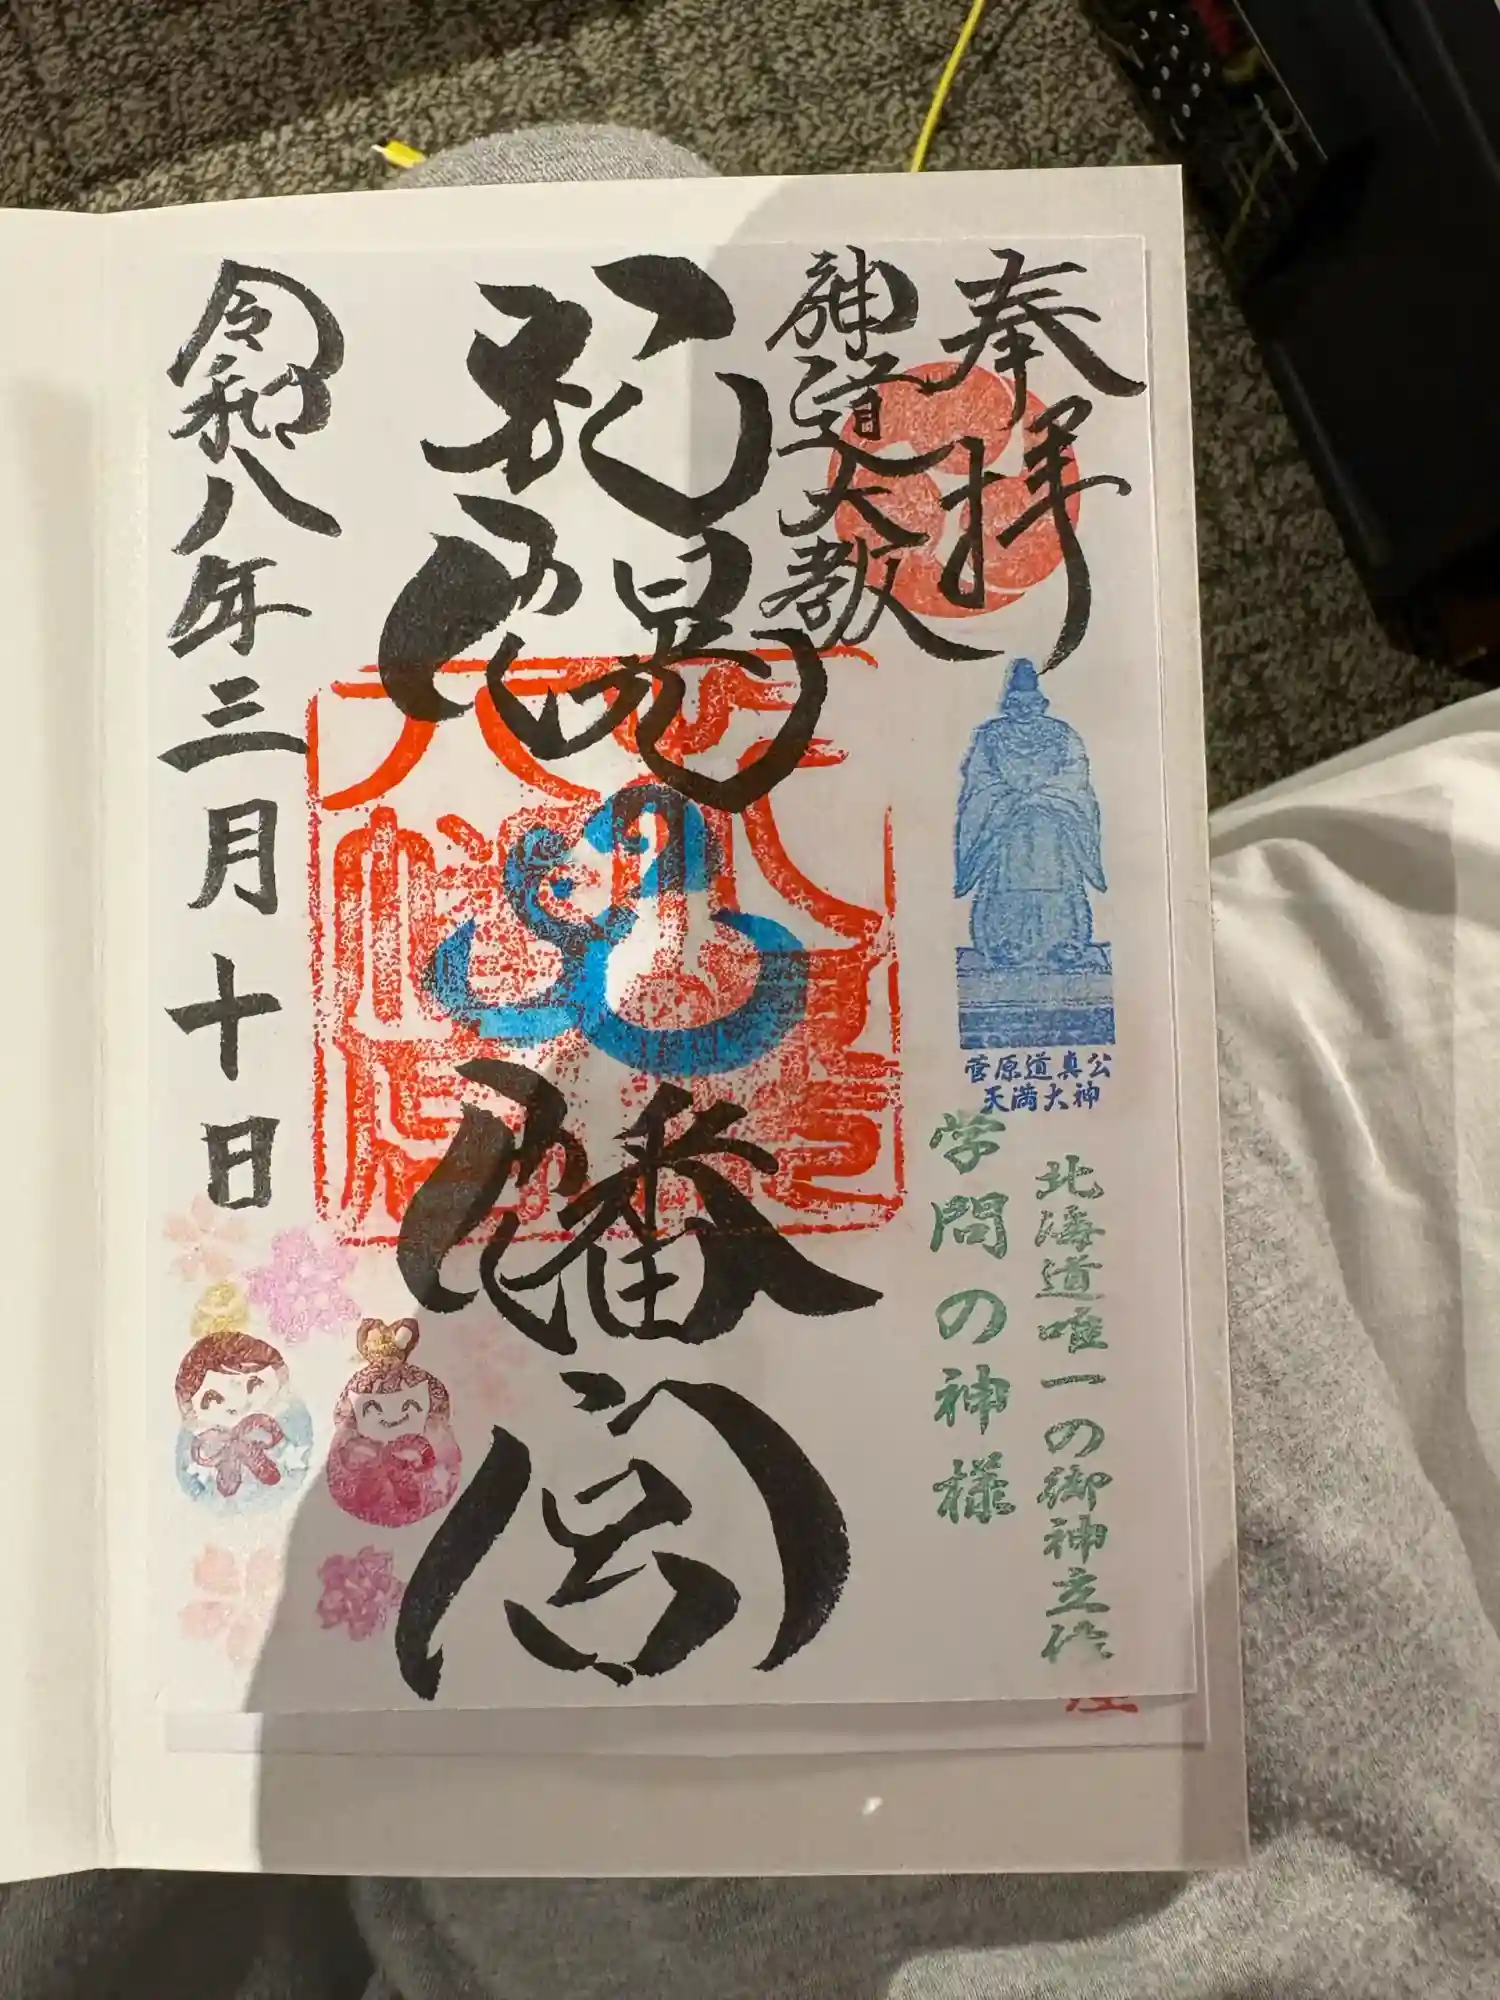 奉拝
神道大教
菅原道真公
天満大神
北海道唯一の御神立像
学問の神様
札幌八幡宮
令和八年三月十日